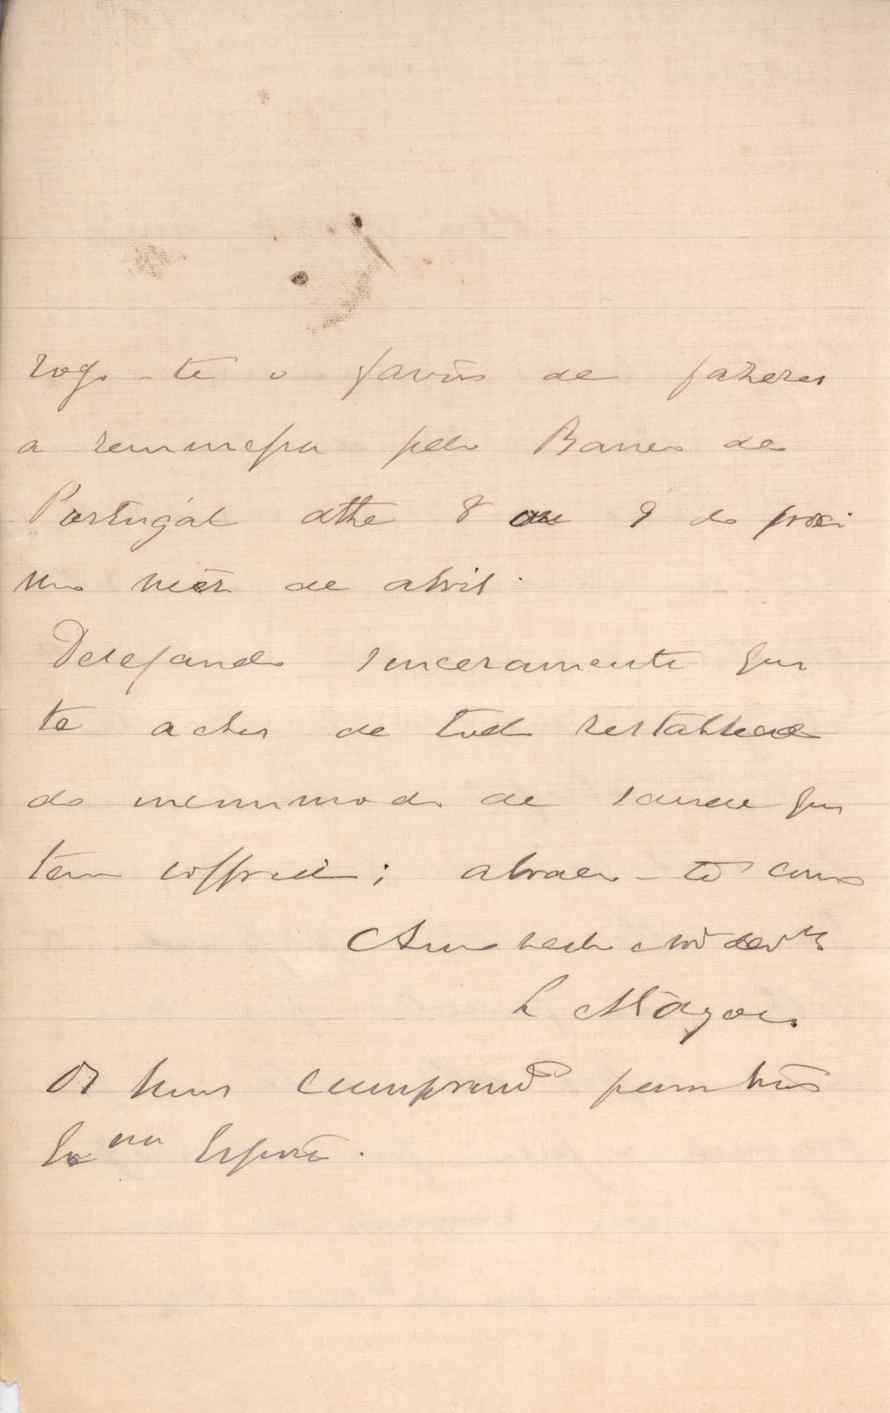 rogo-te o favôr de fazeres
a remmessa pelo Banco de
Portugál athe 8 ou 9 do proxi
mo mêz de abril.
Desejando sinceramente que
te aches de todo restablecido
do incommodo de saude que
tens soffrido; abraço-te como
Amo
L Magão
Os meus cumprimtos para tua
Exma Espoza.